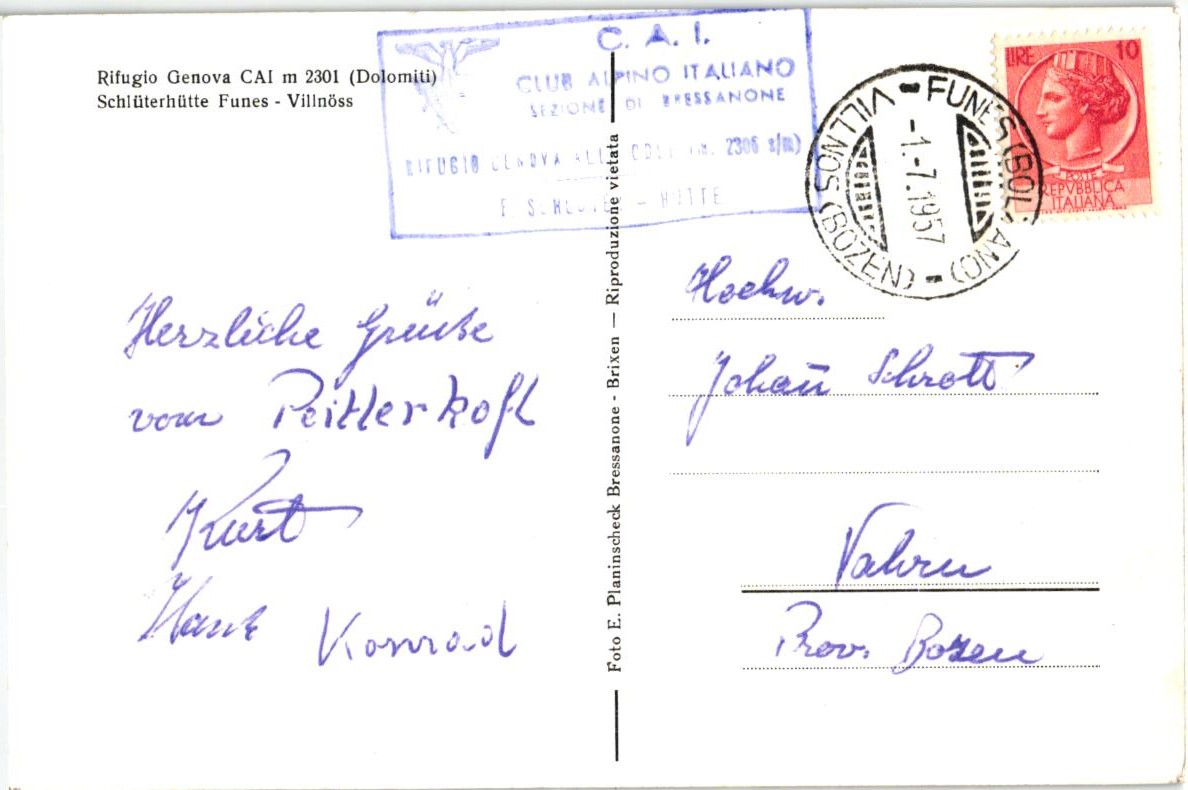 Rifugio Genova CAI m 2301 (Dolomiti)
Schlüterhütte Funes - Villnöss
C. A. I.
CLUB ALPINO ITALIANO
SEZIONE DI BRESSANONE
RIFUGIO GENOVA (m. 2306 s/m)
HÜTTE
VILLNÖS (BOZEN) - FUNES (BOLZANO)
-1.-7.1957
LIRE 10
POSTE
REPVBBLICA
ITALIANA
Herzliche Grüße
vom Peitlerkofl
Kurt
Hans Konrad
Foto E. Planinscheck Bressanone - Brixen — Riproduzione vietata
Hochw.
Johan̄ Schrott
Vahrn
Prov. Bozen